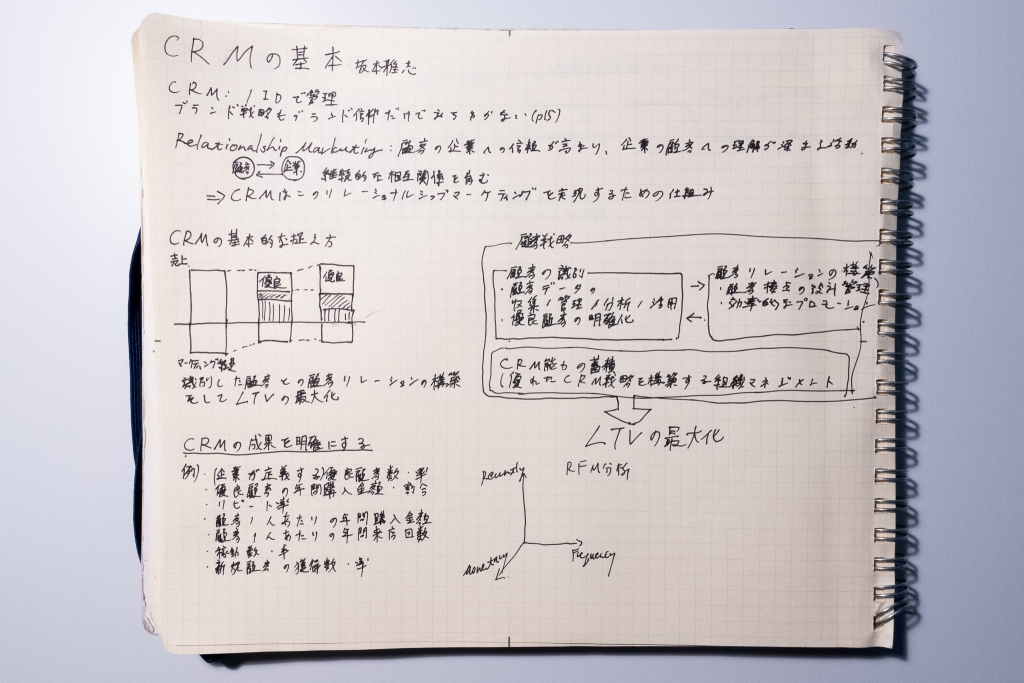 CRMの基本 坂本雅志
CRM: 1IDで管理
ブランド戦略もブランド信仰だけで
(p15)
Relationalship Marketing: 顧客の企業への信頼が高まり、企業の顧客への理解が深まる活動.
顧客 企業 継続的な相互関係を育む
⇒CRMはこのリレーショナルシップマーケティングを実現するための仕組み
CRMの基本的な捉え方
売上
優良
優良
マーケティング
識別した顧客との顧客リレーションの構築
そしてLTVの最大化
CRMの成果を明確にする
例)・(企業が定義する)優良顧客数・率
・優良顧客の年間購入金額・割合
・リピート率
・顧客1人あたりの年間購入金額
・顧客1人あたりの年間来店回数
・稼動数・率
・新規顧客の獲得数・率
顧客戦略
顧客の識別
・顧客データの
収集/管理/分析/活用
・優良顧客の明確化
顧客リレーションの構築
・顧客接点の設計管理
・効率的なプロモーション
CRM能力の蓄積
(優れたCRM戦略を構築する組織マネジメント
LTVの最大化
RFM分析
Recently
Frequency
Monetary